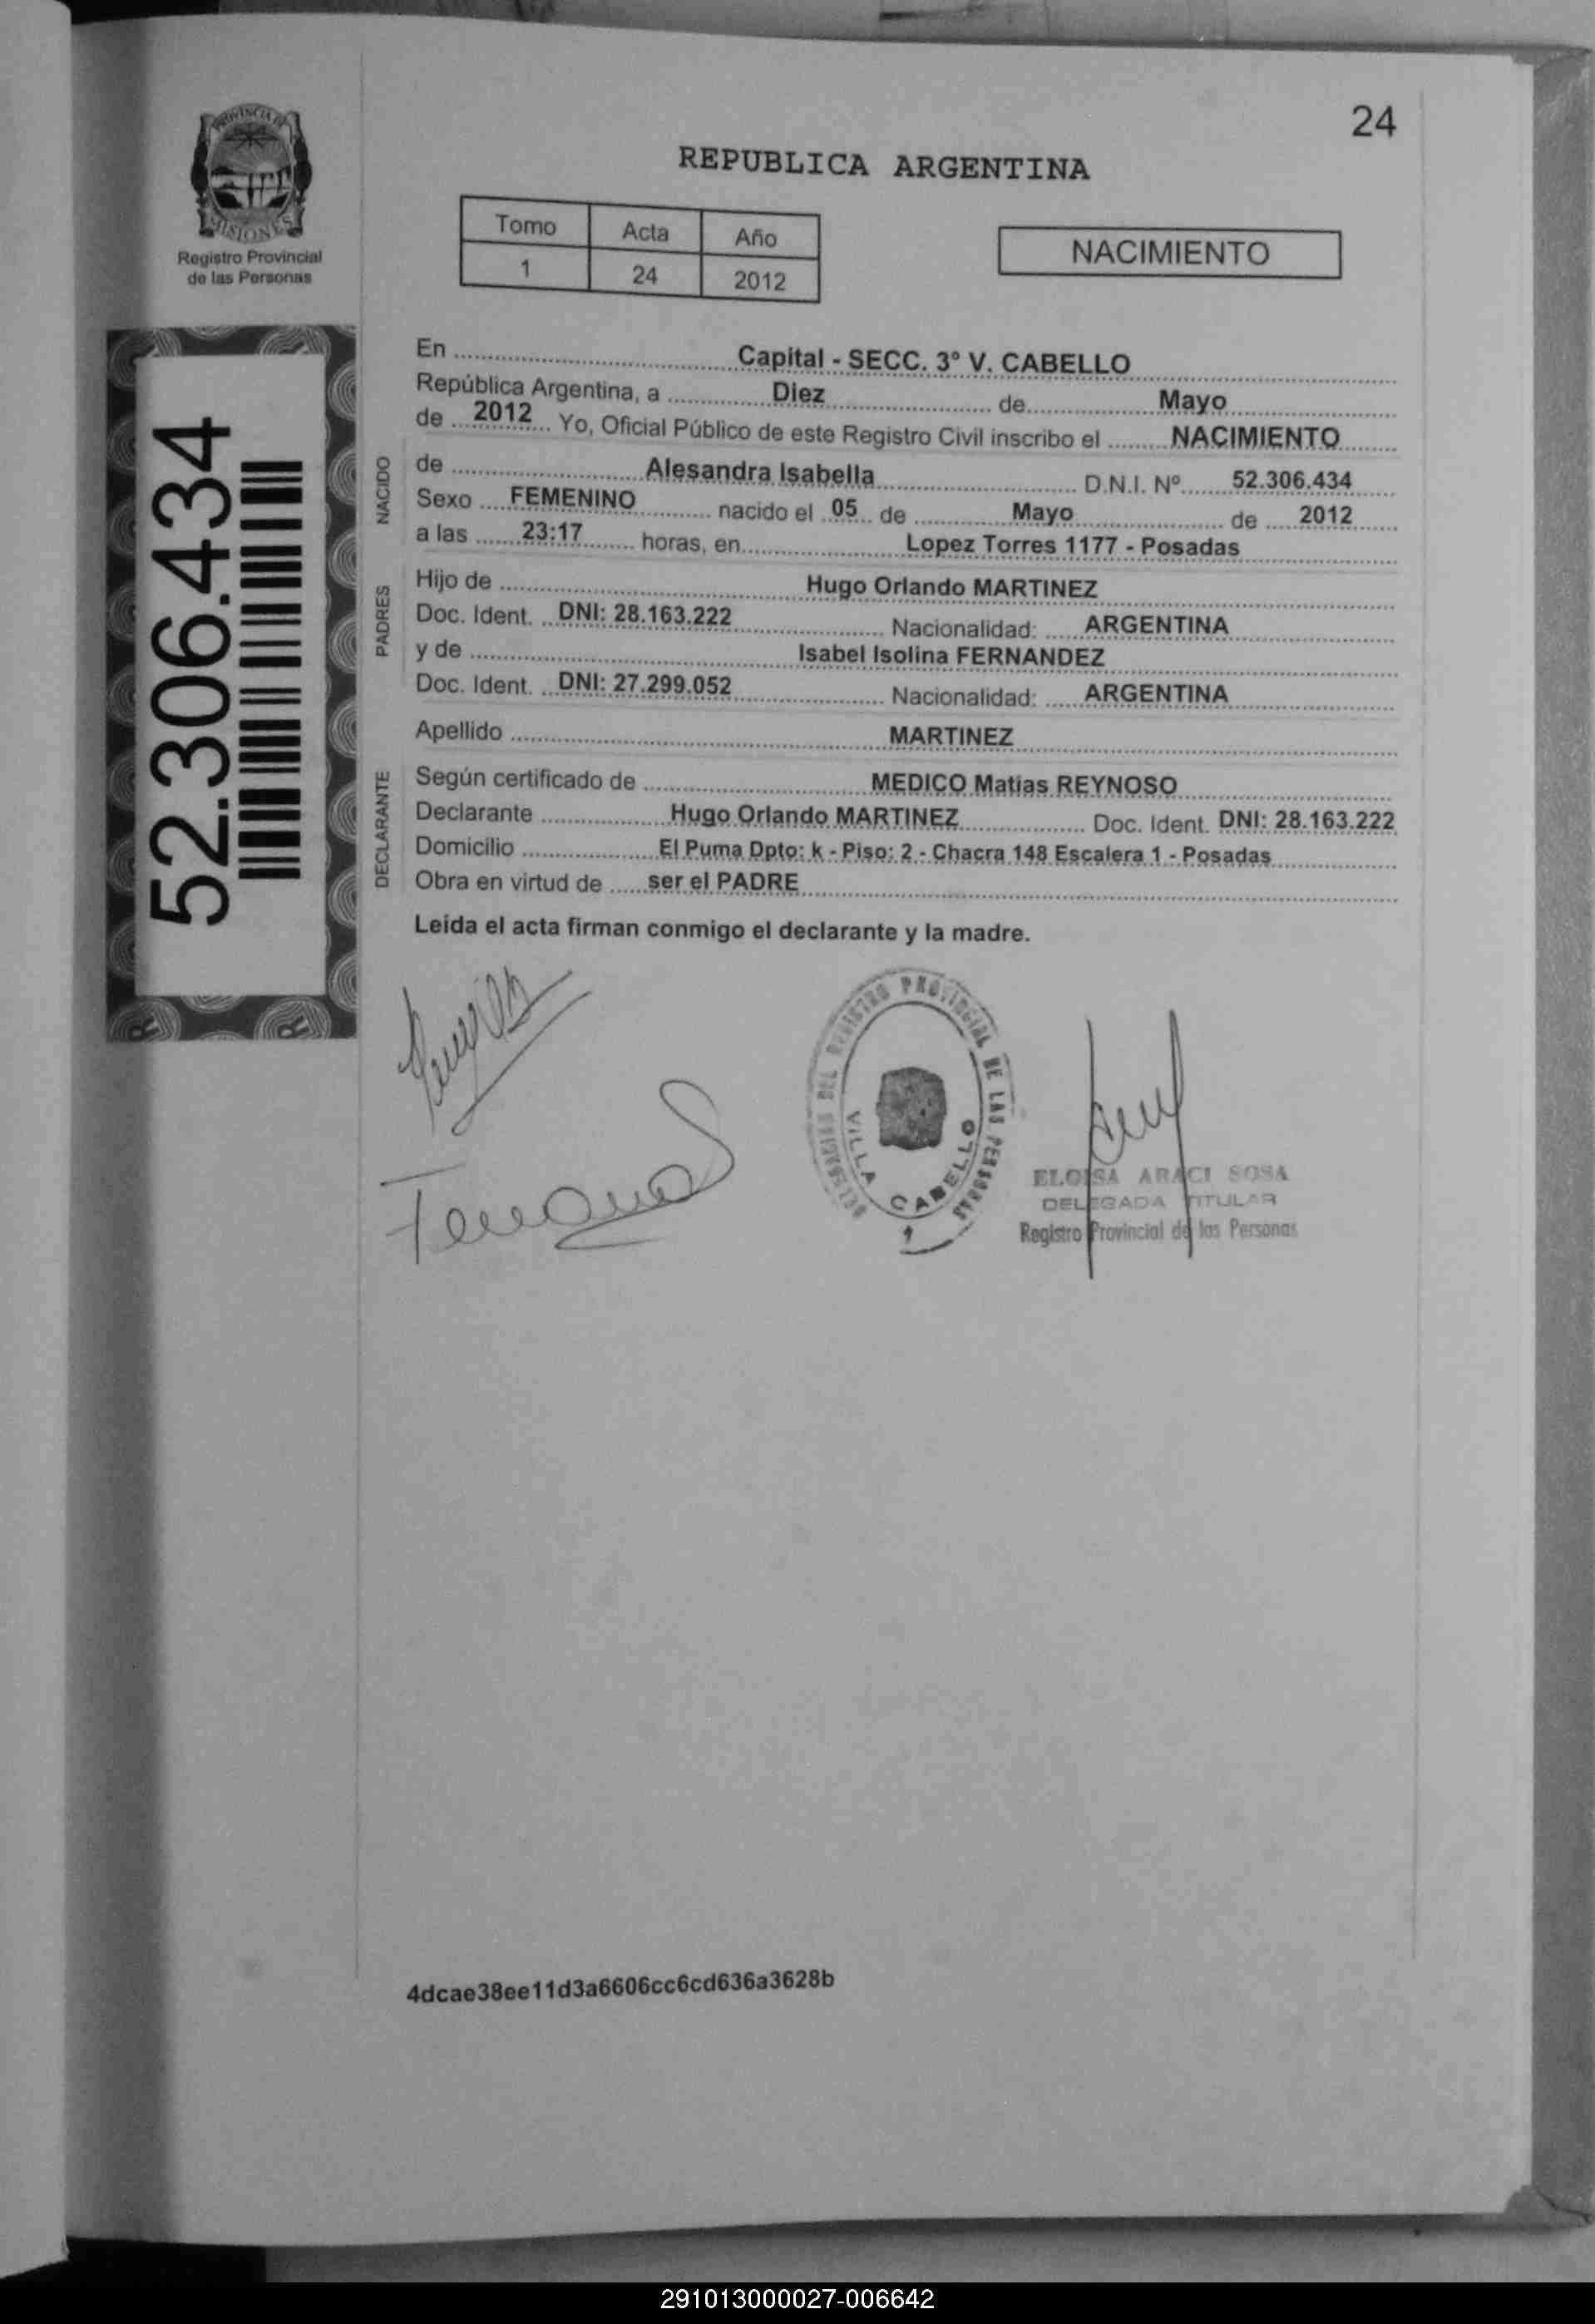 24
PROVINCIA DE
MISIONES
Registro Provincial
de las Personas
REPUBLICA ARGENTINA
Tomo Acta Año
1 24 2012
NACIMIENTO
52.306.434
En Capital - SECC. 3º V. CABELLO
República Argentina, a Diez de Mayo
de 2012 Yo, Oficial Público de este Registro Civil inscribo el NACIMIENTO
NACIDO
de Alesandra Isabella D.N.I. Nº 52.306.434
Sexo FEMENINO nacido el 05 de Mayo de 2012
a las 23:17 horas, en Lopez Torres 1177 - Posadas
PADRES
Hijo de Hugo Orlando MARTINEZ
Doc. Ident. DNI: 28.163.222 Nacionalidad: ARGENTINA
y de Isabel Isolina FERNANDEZ
Doc. Ident. DNI: 27.299.052 Nacionalidad: ARGENTINA
Apellido MARTINEZ
DECLARANTE
Según certificado de MEDICO Matias REYNOSO
Declarante Hugo Orlando MARTINEZ Doc. Ident. DNI: 28.163.222
Domicilio El Puma Dpto: k - Piso: 2 - Chacra 148 Escalera 1 - Posadas
Obra en virtud de ser el PADRE
Leida el acta firman conmigo el declarante y la madre.
DEL REGISTRO PROVINCIAL DE LAS PERSONAS
VILLA CABELLO
ELOISA ARACI SOSA
DELEGADA TITULAR
Registro Provincial de las Personas
4dcae38ee11d3a6606cc6cd636a3628b
291013000027-006642